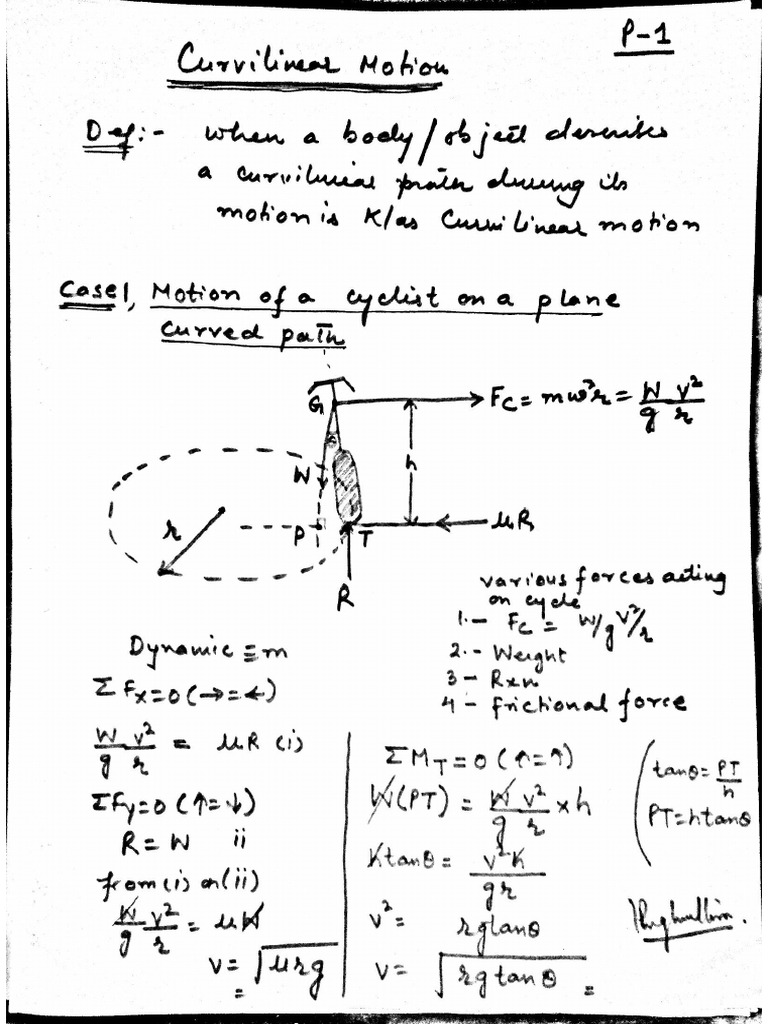 P-1
Curvilinear Motion
Def:- when a body/object describes
a curvilinear path during its
motion is K/as Curvilinear motion
Case1, Motion of a cyclist on a plane
curved path
G
Fc = mω²r = W/g v²/r
θ
W
h
r
P
T
μR
R
various forces acting
on cycle
1.- Fc = W/g v²/r
2.- Weight
3 - Rxn
4 - frictional force
Dynamic ≡m
ΣFx=0 (→=←)
W/g v²/r = μR (i)
ΣFy=0 (↑=↓)
R = W ii
from (i) or (ii)
W/g v²/r = μW
v = √μrg
ΣM_T = 0 (↑=↑)
W(PT) = W/g v²/r × h
htanθ = v²h/gr
v² = rgtanθ
v = √rg tanθ =
tanθ = PT/h
PT = htanθ